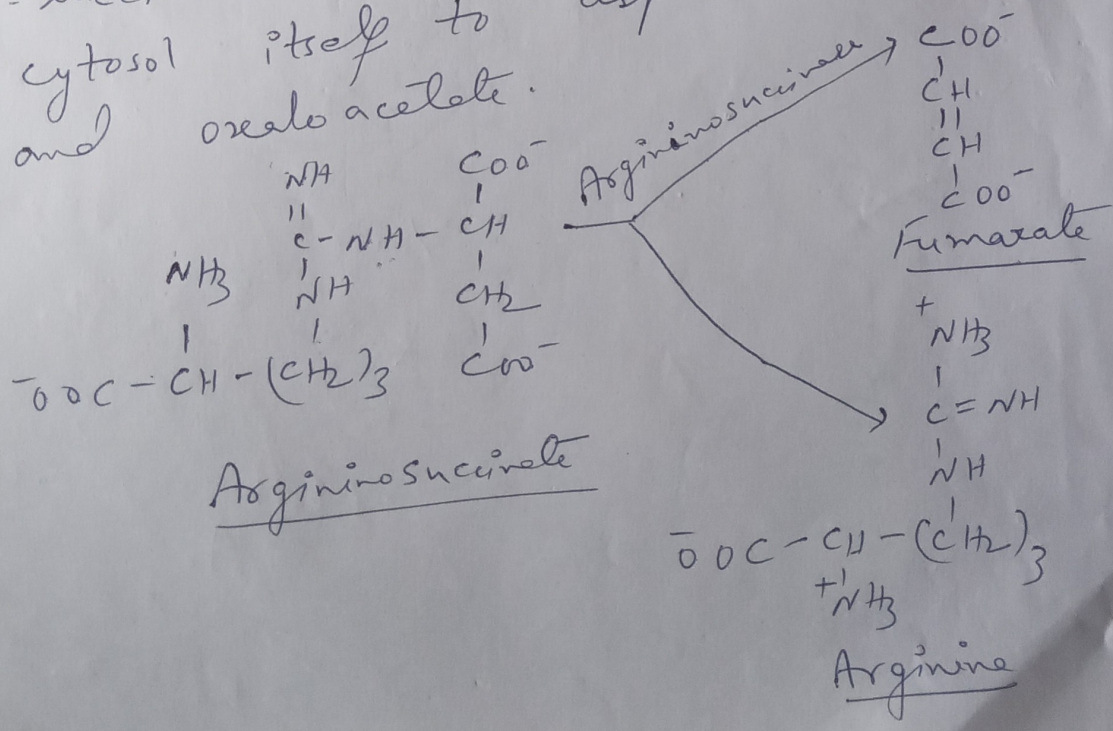 cytosol itself to
and oxaloacetate.
NH
||
C - NH - CH
NH3 NH
OOC - CH - (CH2)3
Argininosuccinate
COO-
CH
CH2
COO-
Argininosuccinase
COO-
CH
||
CH
COO-
Fumarate
+
NH3
C = NH
NH
-OOC - CH - (CH2)3
+NH3
Arginine